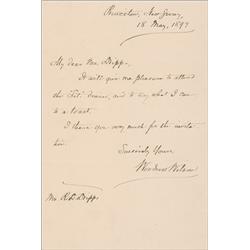 Princeton, New Jersey,
18 May, 1897
My dear Mr. Bripp,
It will give me pleasure to attend
the dinner, and to say what I can
to a toast.
I thank you very much for the invita-
tion.
Sincerely Yours
Woodrow Wilson
Mr.